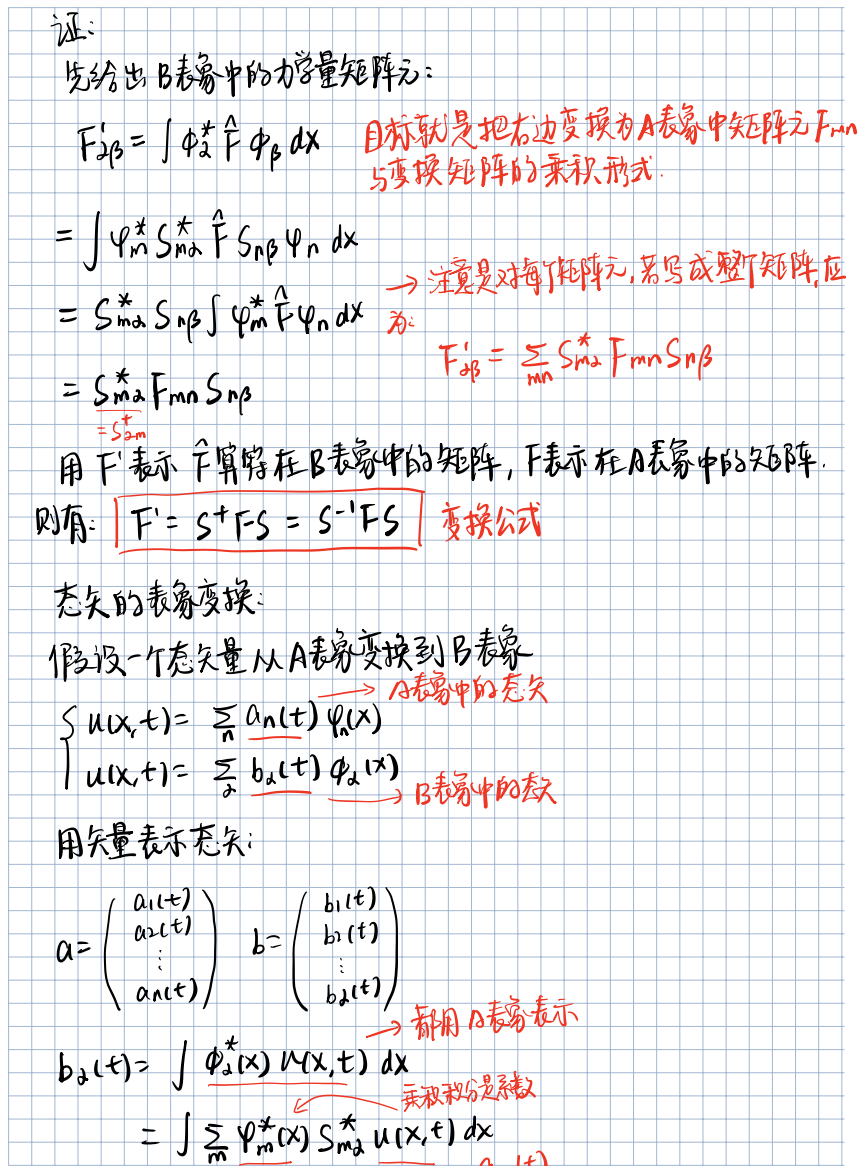 证:
先给出B表象中的力学量矩阵元:
F'αβ = ∫ φα* F̂ φβ dx
目标就是把右边变换为A表象中矩阵元Fmn
与变换矩阵的乘积形式.
= ∫ φm* Smα* F̂ Snβ φn dx
= Smα* Snβ ∫ φm* F̂ φn dx
→ 注意是对每个矩阵元,若写成整个矩阵,应
为:
F'αβ = Σmn Smα* Fmn Snβ
= Smα* Fmn Snβ
= S†αm
用F'表示F̂算符在B表象中的矩阵, F表示在A表象中的矩阵.
则有: F' = S†FS = S⁻¹FS 变换公式
态矢的表象变换:
假设一个态矢量从A表象变换到B表象
→ A表象中的态矢
u(x,t) = Σn an(t) φn(x)
u(x,t) = Σα bα(t) ϕα(x)
→ B表象中的态矢
用矢量表示态矢:
a = ( a1(t) a2(t) ⋮ an(t) ) b = ( b1(t) b2(t) ⋮ bα(t) )
→ 都用A表象表示
bα(t) = ∫ ϕα*(x) u(x,t) dx
乘积积分是系数
= ∫ Σm φm*(x) Smα* u(x,t) dx